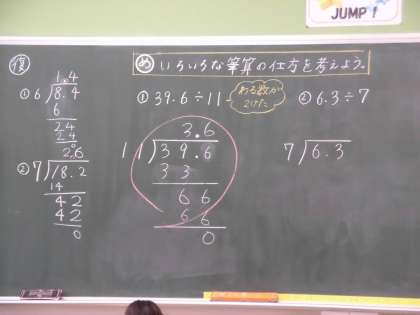 JUMP!
復
めいろいろな筆算の仕方を考えよう。
① 1.4
6)8.4
6
24
24
0
② 2.6
7)18.2
14
42
42
0
① 39.6÷11
わる数が
2けた
3.6
11)39.6
33
66
66
0
② 6.3÷7
7)6.3